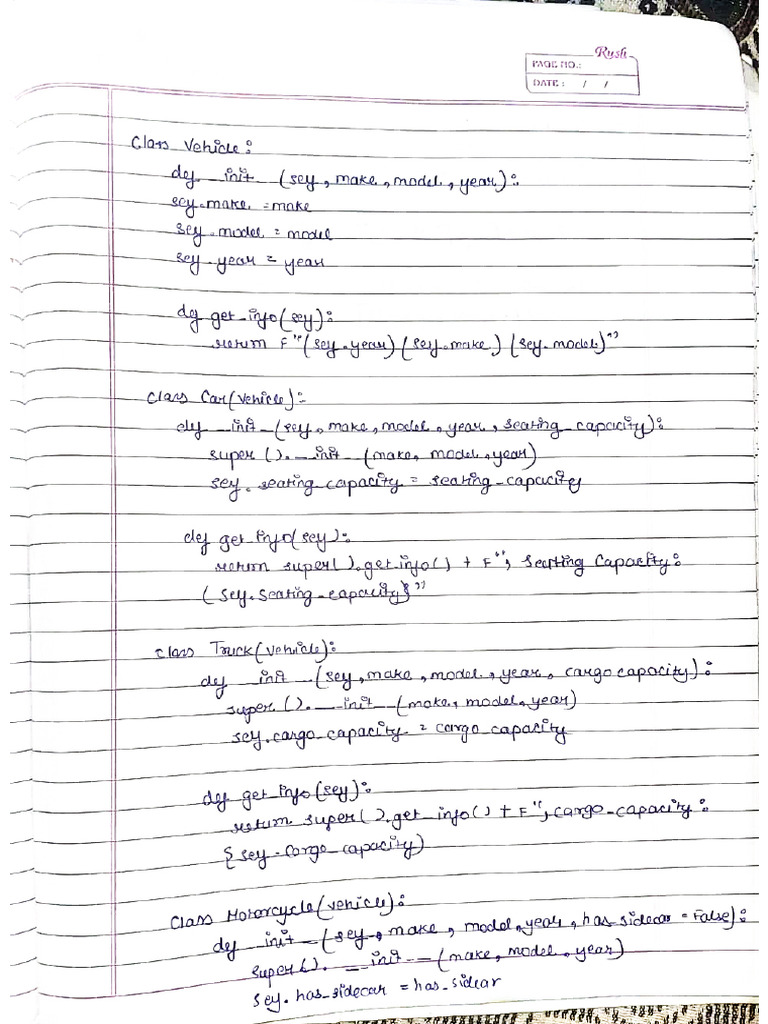 Rush
PAGE NO.:
DATE: / /
Class Vehicle:
def __init__(self, make, model, year):
self.make = make
self.model = model
self.year = year
def get_info(self):
return F"(self.year) (self.make) (self.model)"
class Car(Vehicle):
def __init__(self, make, model, year, seating_capacity):
super().__init__(make, model, year)
self.seating_capacity = seating_capacity
def get_info(self):
return super().get_info() + F", Seating Capacity:
(self.seating_capacity}"
class Truck(Vehicle):
def __init__(self, make, model, year, cargo capacity):
super().__init__(make, model, year)
self.cargo_capacity = cargo_capacity
def get_info(self):
return super().get_info() + F", cargo_capacity:
{self.cargo_capacity)
Class Motorcycle(vehicle):
def __init__(self, make, model, year, has sidecar = False):
super().__init__(make, model, year)
self.has_sidecar = has_sidcar